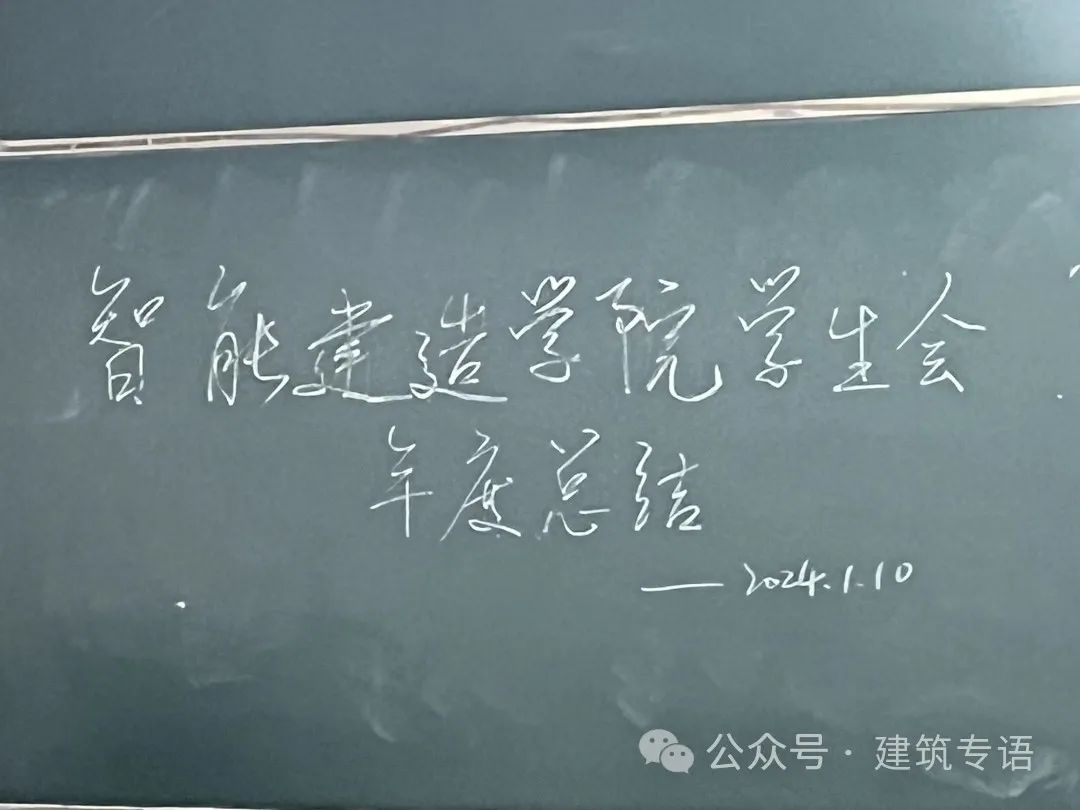 智能建造学院学生会
年度总结
——2024.1.10
公众号·建筑专语